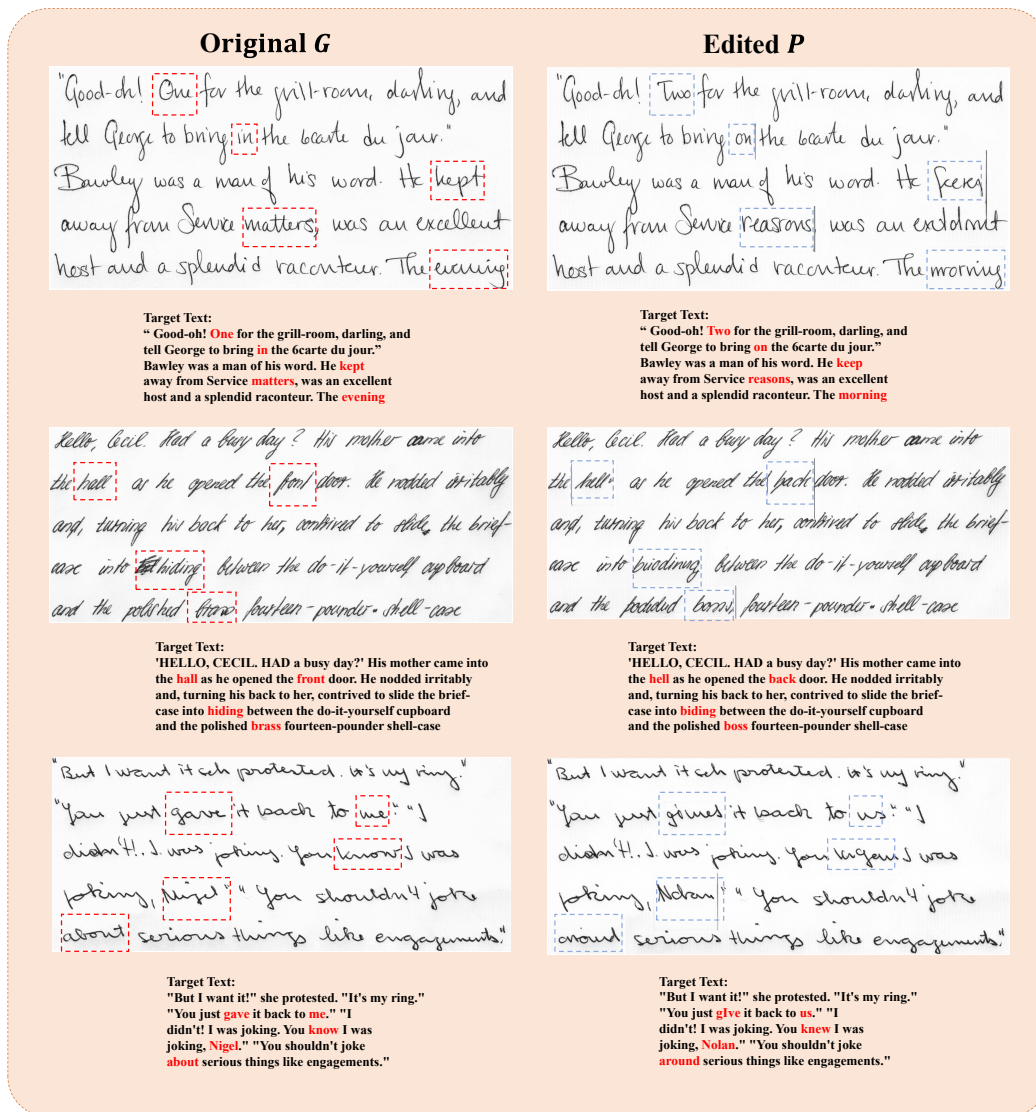 Original G
"Good-oh! One for the grill-room, darling, and
tell George to bring in the 6carte du jour."
Bawley was a man of his word. He kept
away from Service matters, was an excellent
host and a splendid raconteur. The evening
Target Text:
“ Good-oh! One for the grill-room, darling, and
tell George to bring in the 6carte du jour.”
Bawley was a man of his word. He kept
away from Service matters, was an excellent
host and a splendid raconteur. The evening
Hello, Cecil. Had a busy day? His mother came into
the hall as he opened the front door. He nodded irritably
and, turning his back to her, contrived to slide the brief-
case into hiding between the do-it-yourself cupboard
and the polished brass fourteen-pounder shell-case
Target Text:
'HELLO, CECIL. HAD a busy day?' His mother came into
the hall as he opened the front door. He nodded irritably
and, turning his back to her, contrived to slide the brief-
case into hiding between the do-it-yourself cupboard
and the polished brass fourteen-pounder shell-case
"But I want it seh protested. It's my ring."
"You just gave it back to me." "I
didn't!. I was joking. You know I was
joking, Nigel" "You shouldn't joke
about serious things like engagements."
Target Text:
"But I want it!" she protested. "It's my ring."
"You just gave it back to me." "I
didn't! I was joking. You know I was
joking, Nigel." "You shouldn't joke
about serious things like engagements."
Edited P
"Good-oh! Two for the grill-room, darling, and
tell George to bring on the 6carte du jour."
Bawley was a man of his word. He
away from Service reasons was an
host and a splendid raconteur. The morning
Target Text:
“ Good-oh! Two for the grill-room, darling, and
tell George to bring on the 6carte du jour.”
Bawley was a man of his word. He keep
away from Service reasons, was an excellent
host and a splendid raconteur. The morning
Hello, Cecil. Had a busy day? His mother came into
the hell as he opened the back door. He nodded irritably
and, turning his back to her, contrived to slide the brief-
case into between the do-it-yourself cupboard
and the fourteen-pounder shell-case
Target Text:
'HELLO, CECIL. HAD a busy day?' His mother came into
the hell as he opened the back door. He nodded irritably
and, turning his back to her, contrived to slide the brief-
case into biding between the do-it-yourself cupboard
and the polished boss fourteen-pounder shell-case
"But I want it seh protested. It's my ring."
"You just it back to us." "I
didn't!. I was joking. You I was
joking, Nolan" "You shouldn't joke
around serious things like engagements."
Target Text:
"But I want it!" she protested. "It's my ring."
"You just gIve it back to us." "I
didn't! I was joking. You knew I was
joking, Nolan." "You shouldn't joke
around serious things like engagements."